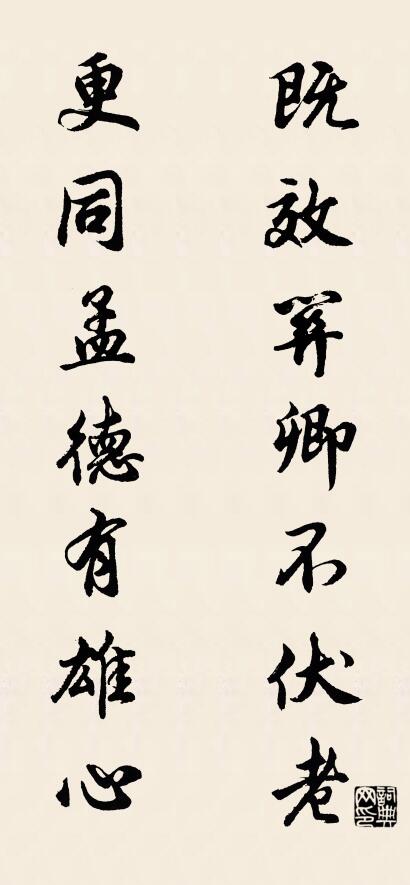 既效關卿不伏老
更同孟德有雄心
詞典
网印